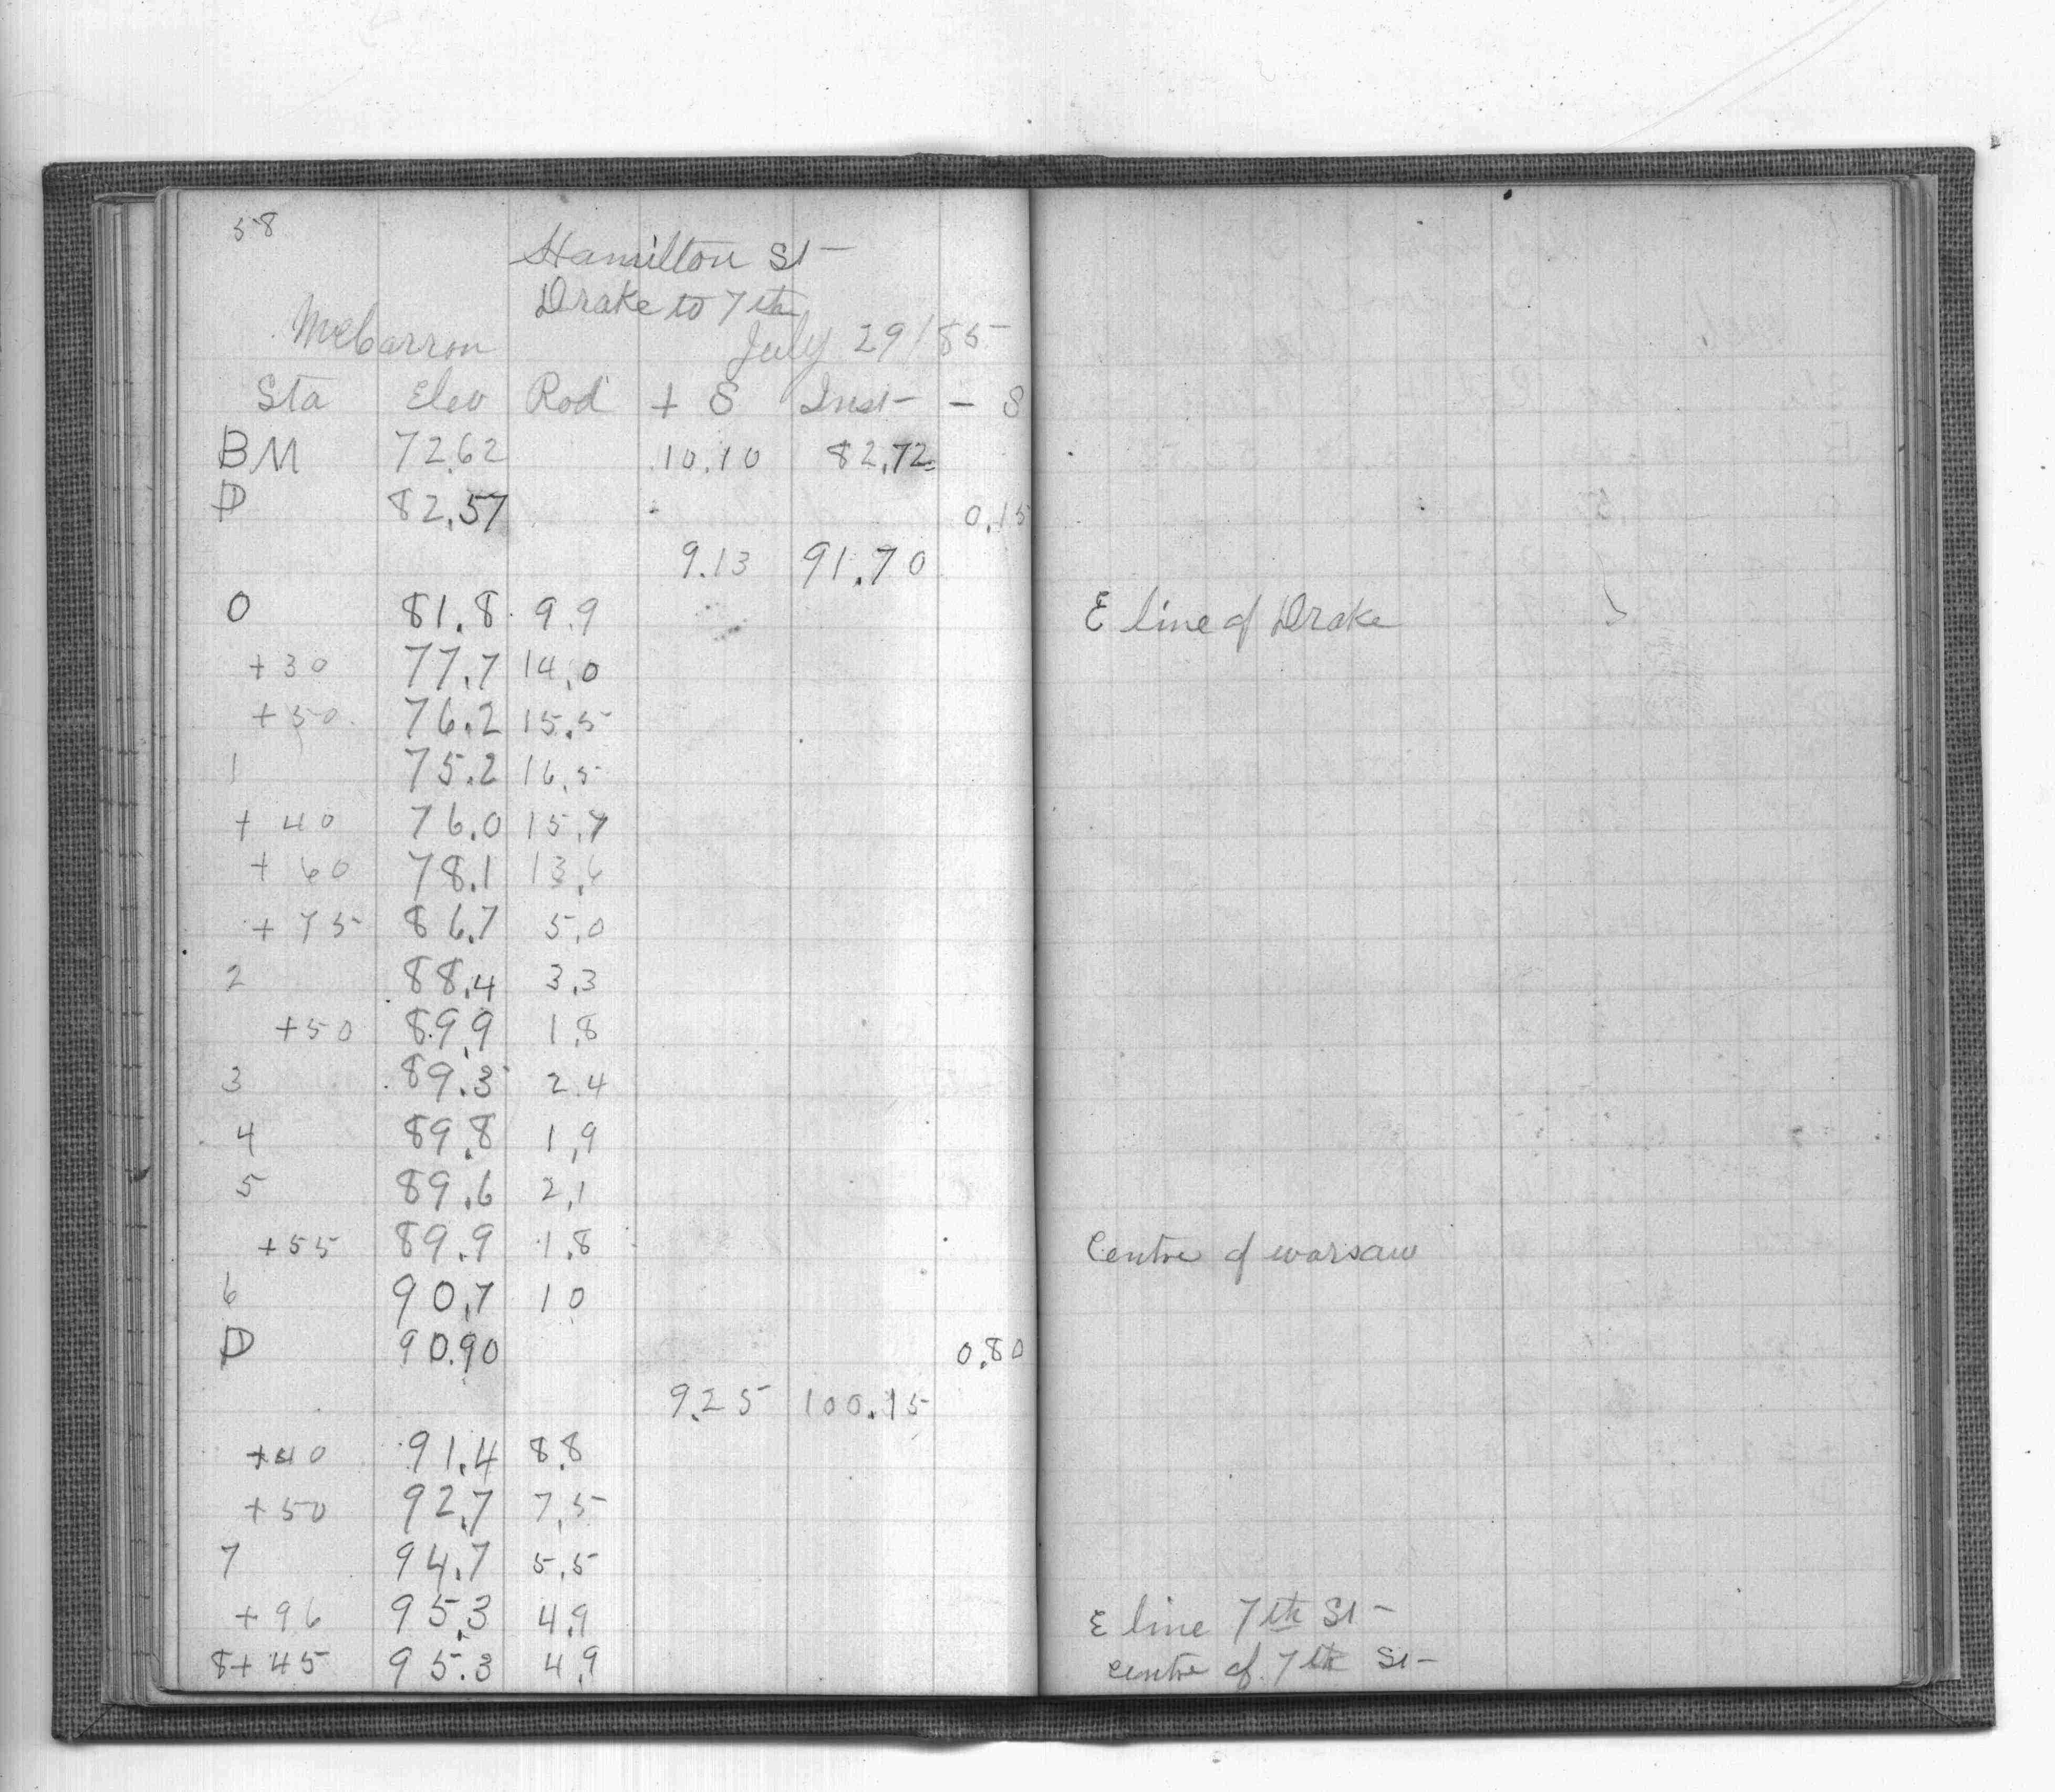 58
Hamilton St
Drake to 7th
McCarron July 29/85
Sta Elev Rod + S Inst - S
BM 72.62 10.10 82.72
D 82.57 0.15
9.13 91.70
0 81.8 9.9 E line of Drake
+30 77.7 14.0
+50 76.2 15.5
1 75.2 16.5
+ 40 76.0 15.7
+ 60 78.1 13.6
+ 75 86.7 5.0
2 88.4 3.3
+50 89.9 1.8
3 89.3 2.4
4 89.8 1.9
5 89.6 2.1
+55 89.9 1.8 Centre of warsaw
6 90.7 10
D 90.90 0.80
9.25 100.15
+40 91.4 8.8
+50 92.7 7.5
7 94.7 5.5
+96 95.3 4.9 E line 7th St
8+45 95.3 4.9 centre of 7th St